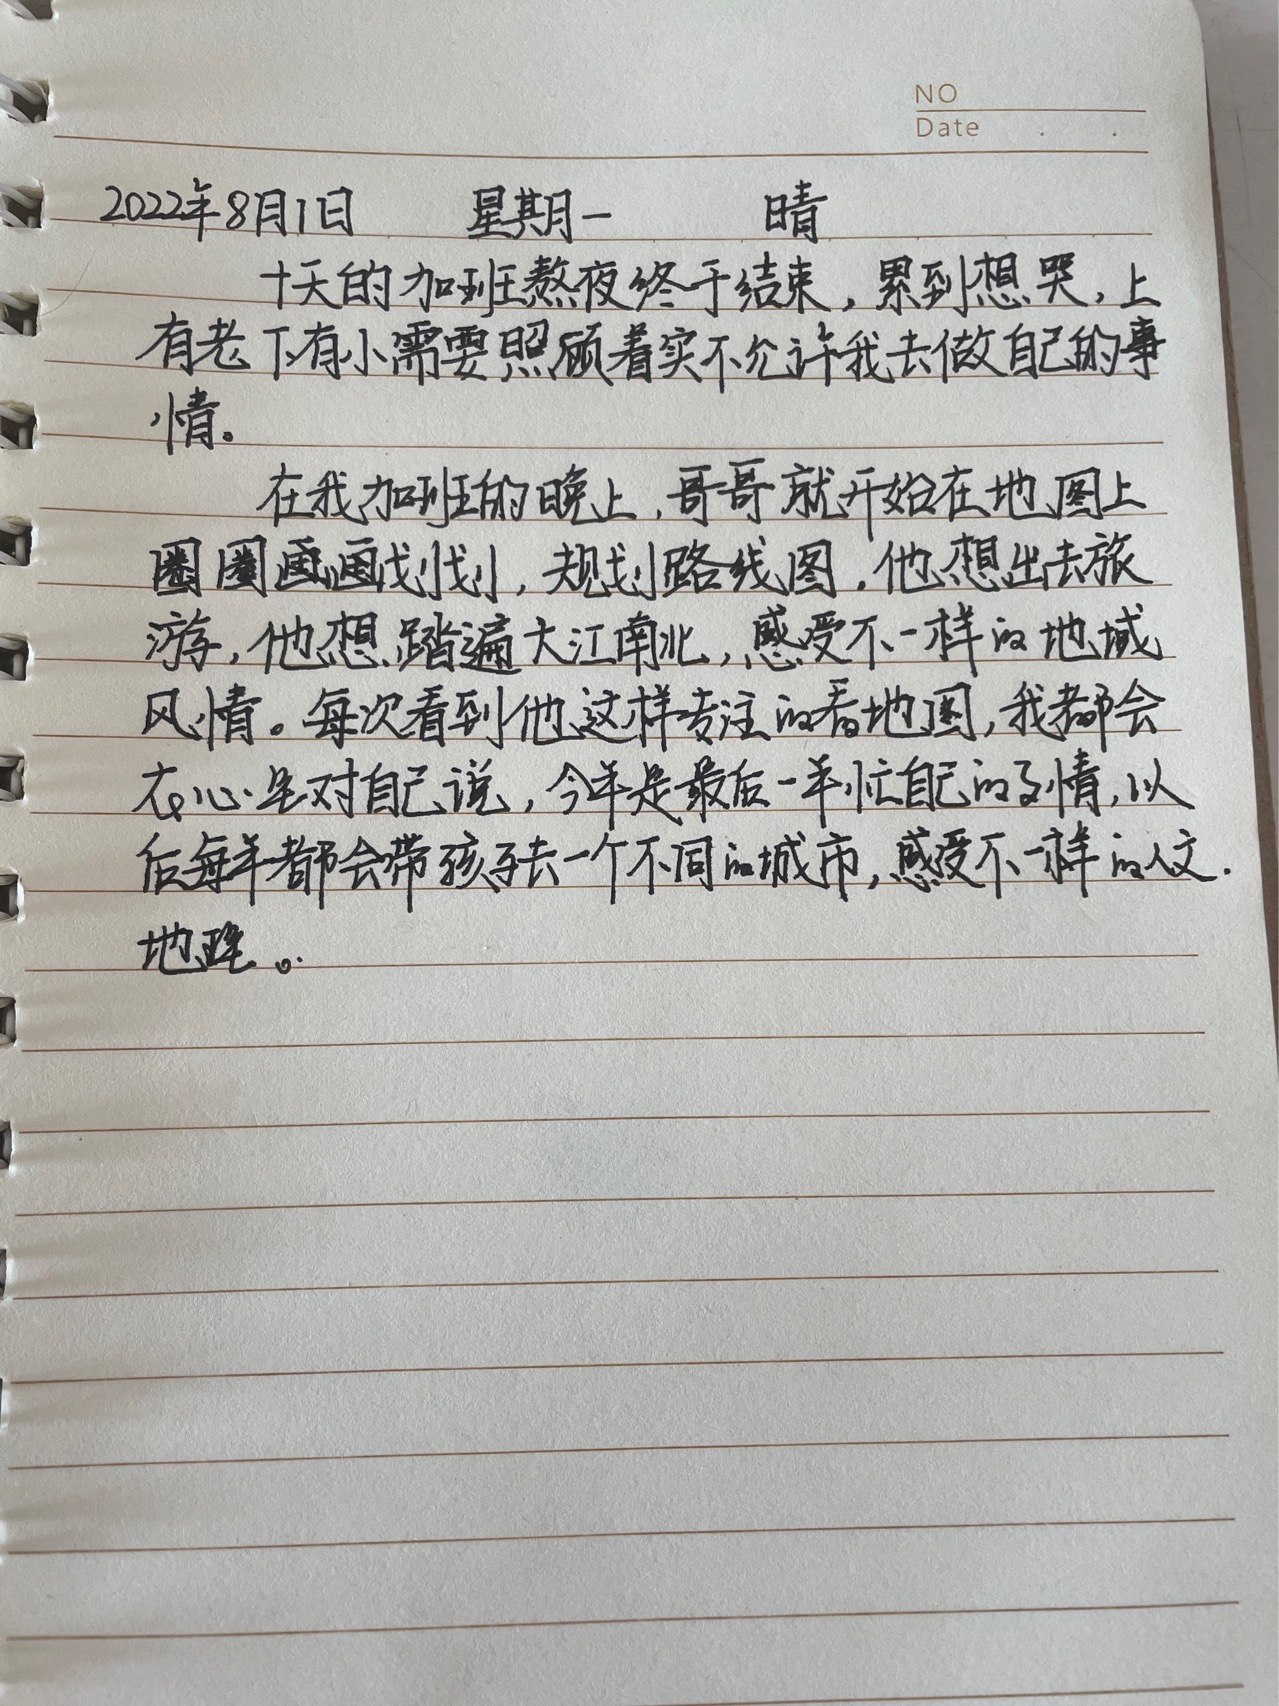 NO
Date . .
2022年8月1日 星期一 晴
十天的加班熬夜终于结束,累到想哭,上
有老下有小需要照顾着实不允许我去做自己的事
情。
在我加班的晚上,哥哥就开始在地图上
圈圈画画划划,规划路线图,他想出去旅
游,他想踏遍大江南北,感受不一样的地域
风情。每次看到他这样专注的看地图,我都会
在心里对自己说,今年是最后一年忙自己的事情,以
后每年都会带孩子去一个不同的城市,感受不一样的人文.
地理。